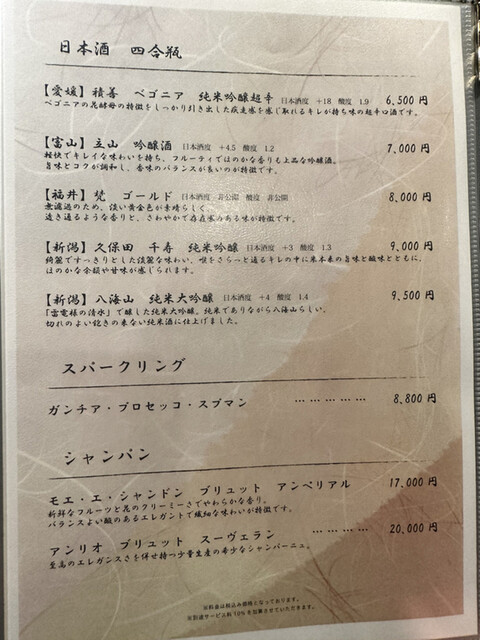 日本酒　四合瓶
【愛媛】積善　ベゴニア　純米吟醸超辛　日本酒度　+18　酸度　1.9　6,500 円
ベゴニアの花酵母の特徴をしっかり引き出した疾走感を感じ取れるキレが持ち味の超辛口酒です。
【富山】立山　吟醸酒　日本酒度　+4.5　酸度　1.2　7,000 円
軽快でキレイな味わいを持ち、フルーティでほのかな香りも上品な吟醸酒。
旨味とコクが調和し、香味のバランスが良いのが特徴です。
【福井】梵　ゴールド　日本酒度　非公開　酸度　非公開　8,000 円
無濾過のため、淡い黄金色が素晴らしく、
透き通るような香りと、さわやかで存在感のある味が特徴です。
【新潟】久保田　千寿　純米吟醸　日本酒度　+3　酸度　1.3　9,000 円
綺麗ですっきりとした淡麗な味わい、喉をさらっと通るキレの中に米本来の旨味と酸味とともに、
ほのかな余韻や甘味が感じられます。
【新潟】八海山　純米大吟醸　日本酒度　+4　酸度　1.4　9,500 円
「雷電様の清水」で醸した純米大吟醸。純米でありながら八海山らしい、
切れのよい飽きの来ない純米酒に仕上げました。
スパークリング
ガンチア・プロセッコ・スプマン　………………　8,800 円
シャンパン
モエ・エ・シャンドン　ブリュット　アンペリアル　17,000 円
新鮮なフルーツと花のクリーミーさでやわらかな香り。
バランスよい酸のあるエレガントで繊細な味わいが特徴です。
アンリオ　ブリュット　スーヴェラン　………………　20,000 円
至高のエレガンスさを併せ持つ少量生産の希少なシャンパーニュ。
※料金は税込み価格となっております。
※別途サービス料 10% を加算させていただきます。